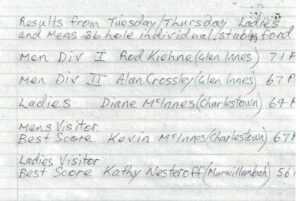 Results from Tuesday/Thursday Ladies
and Mens 36 hole individual stableford
Men Div I Rod Kiehne (Glen Innes) 71P
Men Div II Alan Crossley (Glen Innes) 67P
Ladies Diane McInnes (Charlestown) 69P
Mens Visitor
Best Score Kevin McInnes (Charlestown) 67P
Ladies Visitor
Best Score Kathy Nesteroff (Murwillumbah) 56